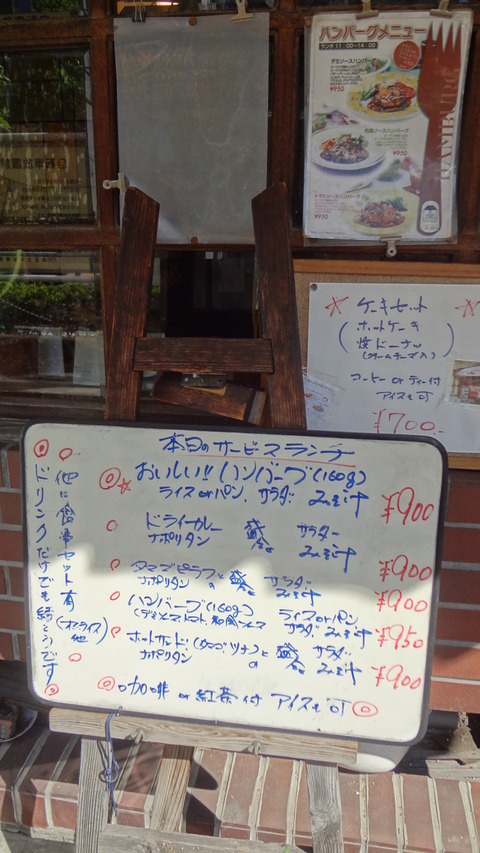 ハンバーグメニュー
ランチ 11:00~14:00
デミソースハンバーグ
¥950
和風ソースハンバーグ
¥950
トマトソースハンバーグ
¥950
HAMBURG
ケーキセット
(ホットケーキ
焼ドーナツ
(クリームチーズ入)
コーヒー or ティー付
アイスも可
¥700-
本日のサービスランチ
おいしい!! ハンバーグ(160g)
ライス or パン、サラダ みそ汁 ¥900
ドライカレー 盛合せ サラダ
ナポリタン みそ汁 ¥900
ナポリタン の 盛合せ サラダ みそ汁 ¥900
ハンバーグ(160g) ライス or パン
サラダ みそ汁 ¥950
ホットサンド(タマゴ ツナ)と 盛合せ サラダ
ナポリタン の みそ汁 ¥900
珈琲 or 紅茶 付 アイスも可
他に食事セット有
(オムライス他)
ドリンクだけでも結こうです